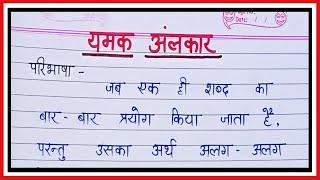 यमक अंलकार
परिभाषा -
जब एक ही शब्द का
बार - बार प्रयोग किया जाता है,
परन्तु उसका अर्थ अलग - अलग